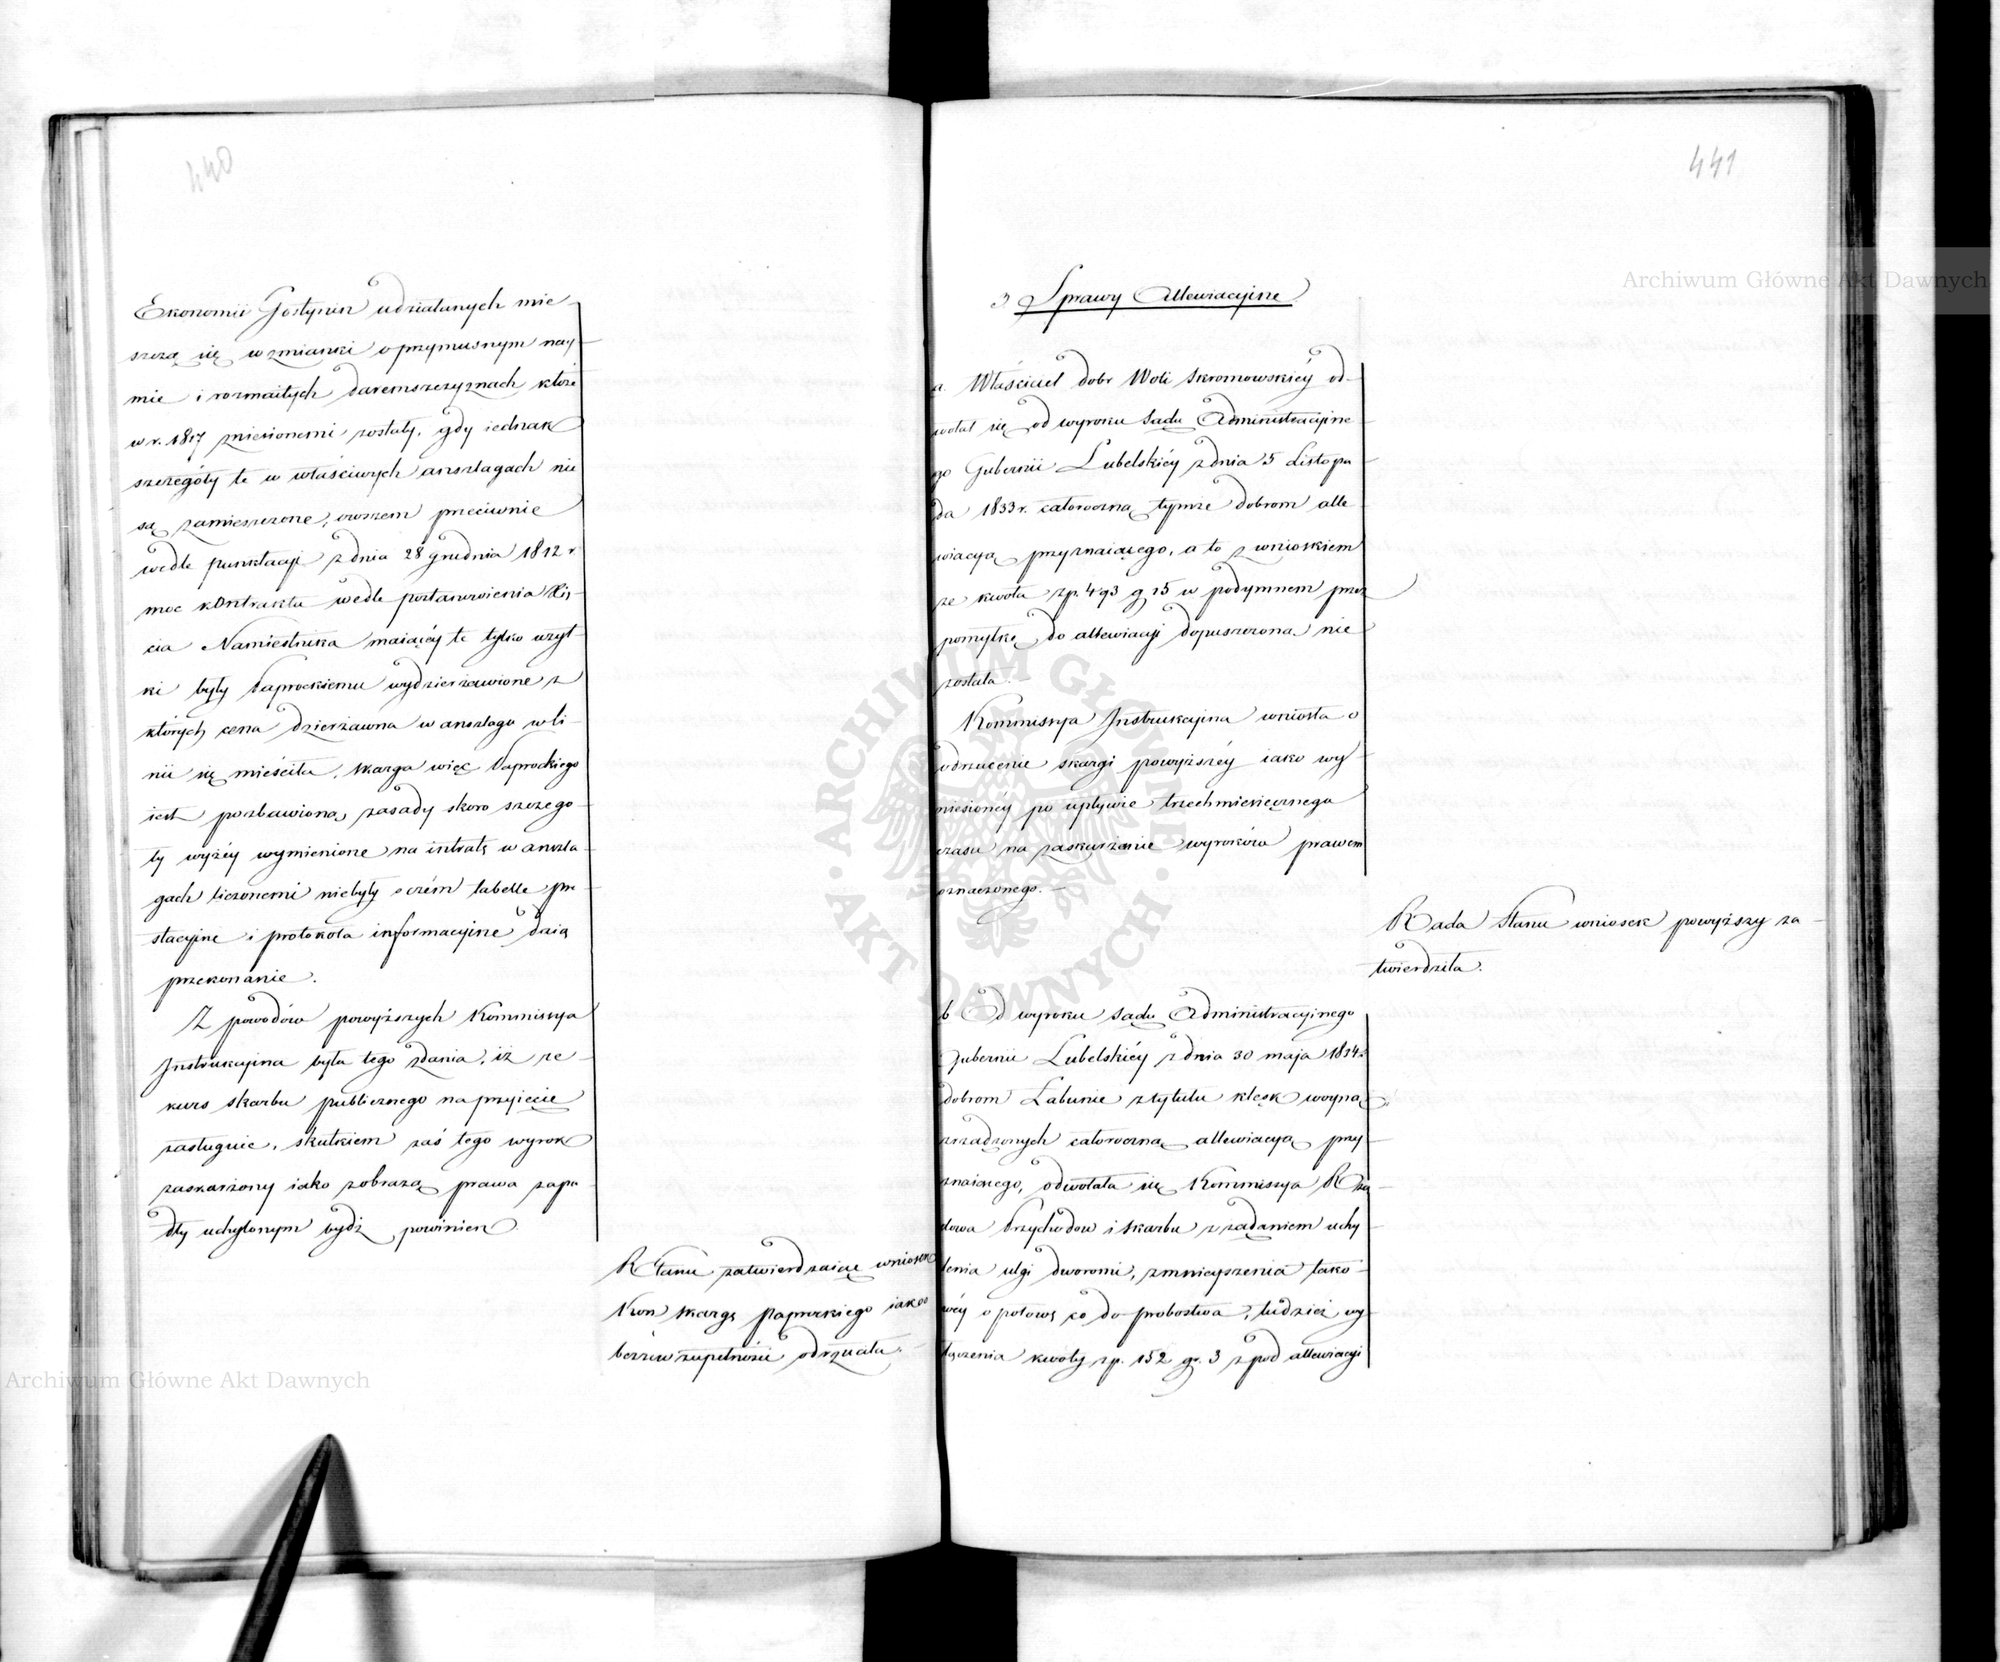 440
Ekonomii Gostynin udziałanych mie
szczą się wzmianki o przymusnym nay
mie i rozmaitych daremszczyznach które
w r. 1817 zniesionemi zostały, gdy iednak
szczegóły te w właściwych anszlagach nie
są zamieszczone, owszem przeciwnie
wedle punktacyi z dnia 28 grudnia 1812 r.
moc kontraktu wedle postanowienia Xię
cia Namiestnika maiącéy te tylko użyt
ki były Paprockiemu wydzierżawione z
których cena dzierżawna w anszlagu w li-
nii się mieściła, skarga więc Paprockiego
iest pozbawioną zasady skoro szczegó
ły wyżéy wymienione na intratę w anszla
gach liczonemi niebyły o czém tabelle pre
stacyjne i protokóła informacyjne daią
przekonanie.
Z powodów powyższych Kommissya
Instrukcyjna była tego zdania, iż re
kurs skarbu publicznego na przyięcie
zasługuie, skutkiem zaś tego wyrok
zaskarżony iako z obrazą prawa zapa
dły uchylonym bydź powinien
R Stanu zatwierdzaiąc wniosek
Kom skargę Paprockiego iako
bezzasadną odrzuciła.
441
3 Sprawy Allewiacyjne
a. Właściciel dobr Woli Skromowskiéy od-
wołał się od wyroku Sądu Administracyjne
go Gubernii Lubelskiéy z dnia 5 Listopa
da 1833 r. całoroczną tymże dobrom alle
wiacyą przyznaiącego, a to z wnioskiem
że kwota zp. 493 g 15 w podymnem przez
pomyłkę do allewiacyi dopuszczoną nie
została.
Kommissya Instrukcyjna wniosła o
odrzucenie skargi powyższéy iako wy
niesionéy po upływie trzechmiesięcznego
czasu na zaskarżanie wyroków prawem
oznaczonego.
Rada Stanu wniosek powyższy za
twierdziła.
b Od wyroku Sądu Administracyjnego
Gubernii Lubelskiéy z dnia 30 maja 1834 r.
dobrom Łabunie z tytułu klęsk woyną
zrządzonych całoroczną allewiacyą przy
znaiącego, odwołała się Kommissya Rzą
dowa Przychodów i Skarbu z żądaniem uchy
lenia ulgi dworowi, zmnieyszenia tako
wéy o połowę co do probostwa, tudzież wy
łączenia kwoty zp. 152 gr. 3 z pod allewiacyi
Archiwum Główne Akt Dawnych
Archiwum Główne Akt Dawnych
ARCHIWUM GŁÓWNE · AKT DAWNYCH ·